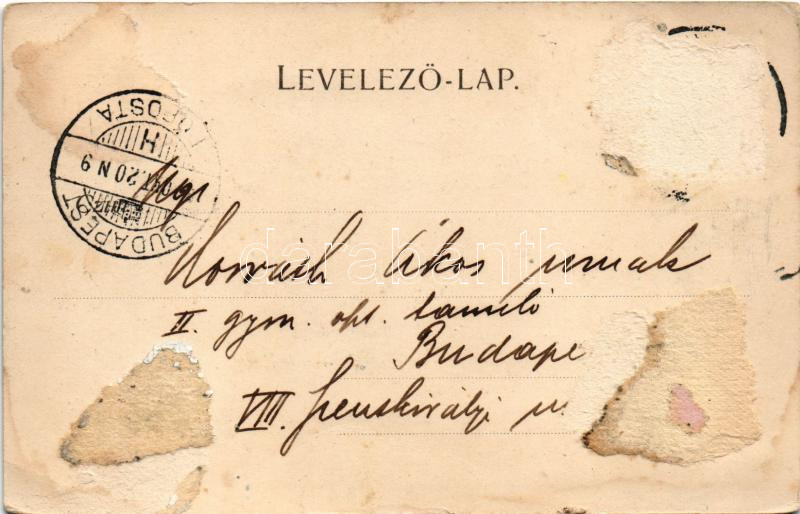 LEVELEZŐ-LAP.
BUDAPEST
FŐPOSTA
20 N 9
H
Ngs.
Horváth Ákos urnak
II. gym. opt. tanuló
Budape
VIII. Szentkirályi u
darabanth